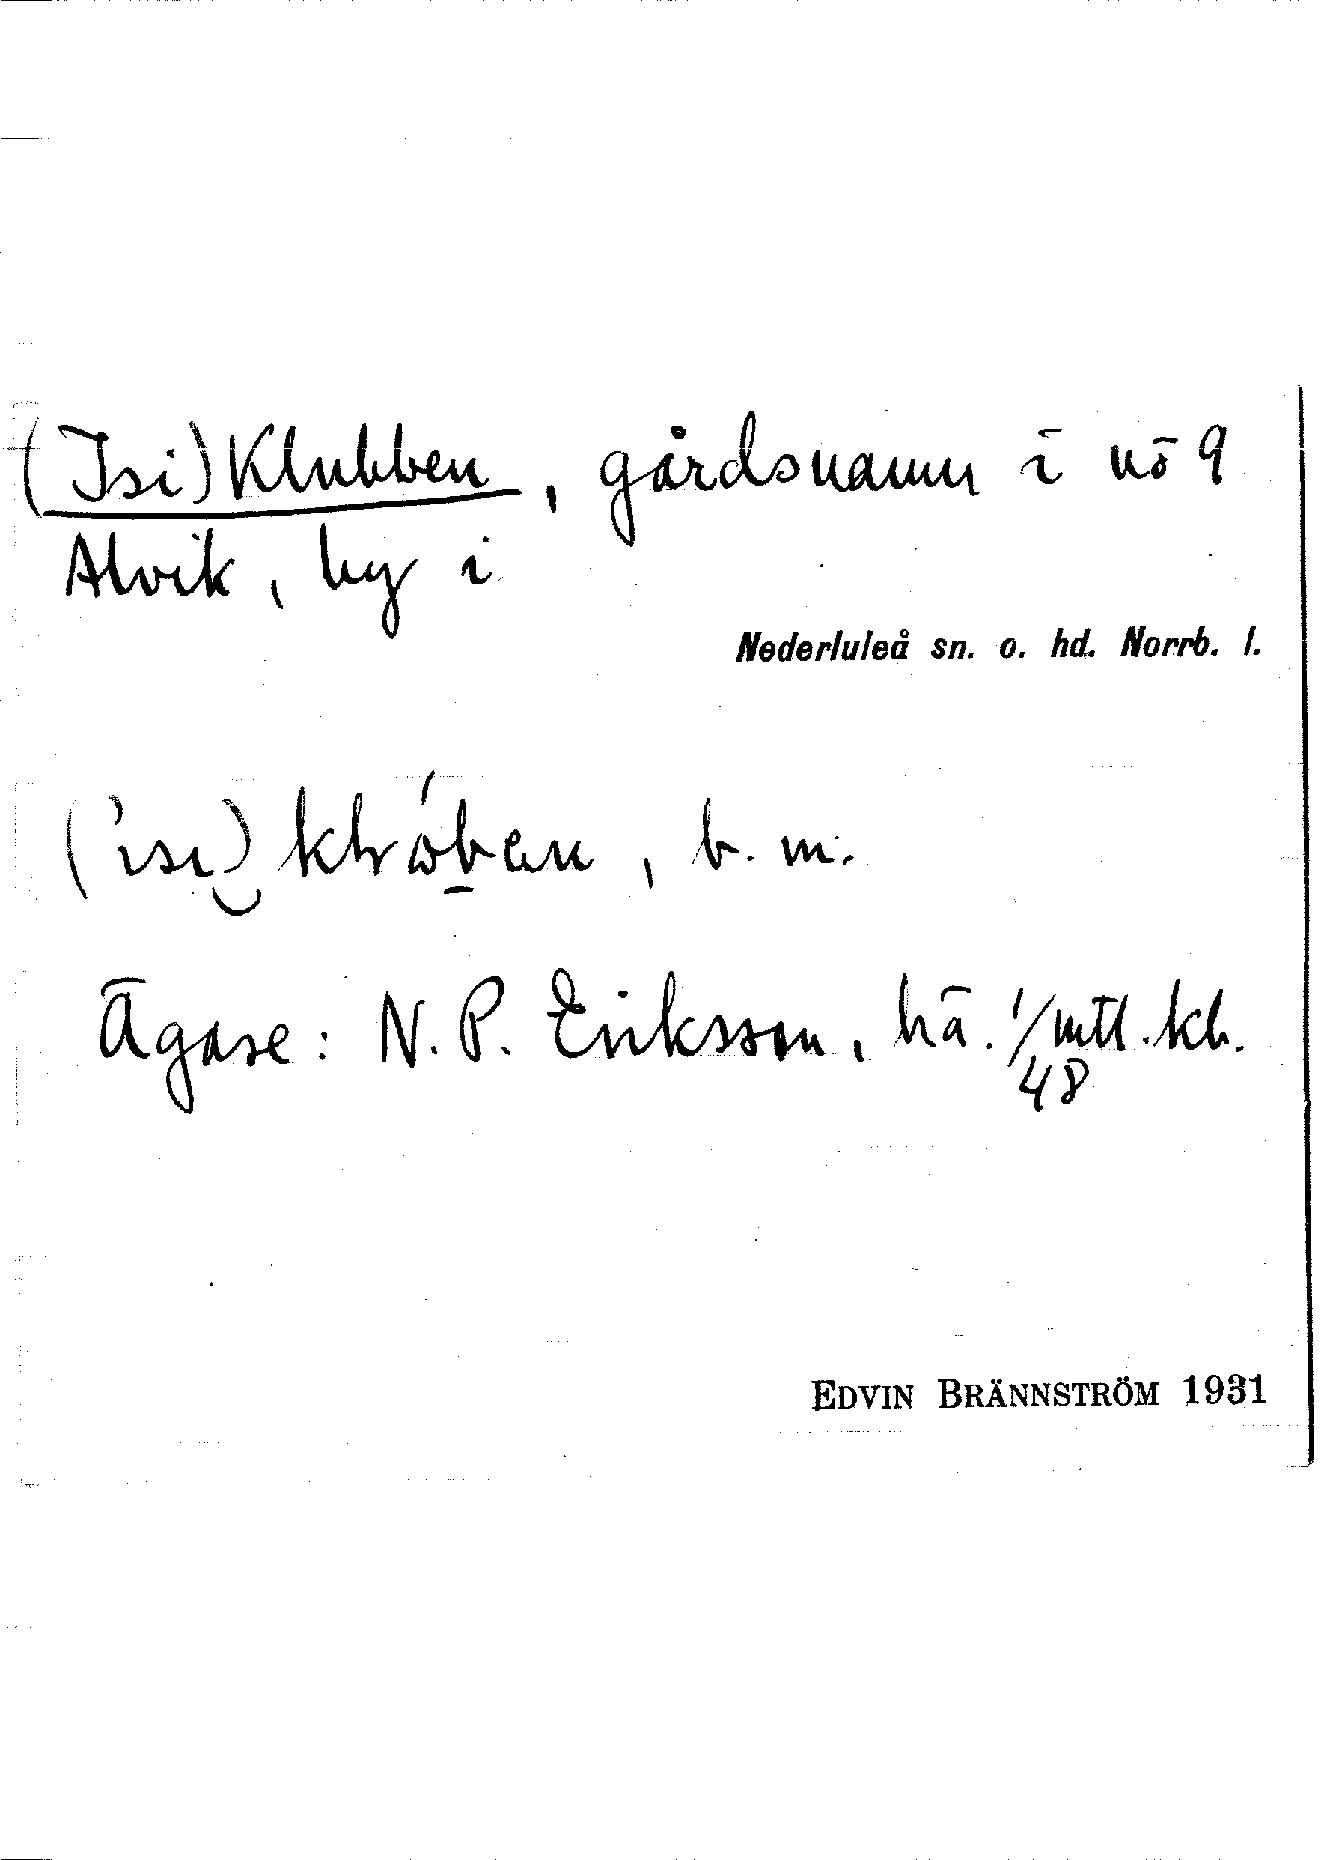 (Isi)Klubben, gårdsnamn i nö 9
Alvik, by i
Nederluleå sn. o. hd. Norrb. l.
b. m.
Ägare: N. P. Eriksson, hä. 1/48 mtl. kb.
EDVIN BRÄNNSTRÖM 1931